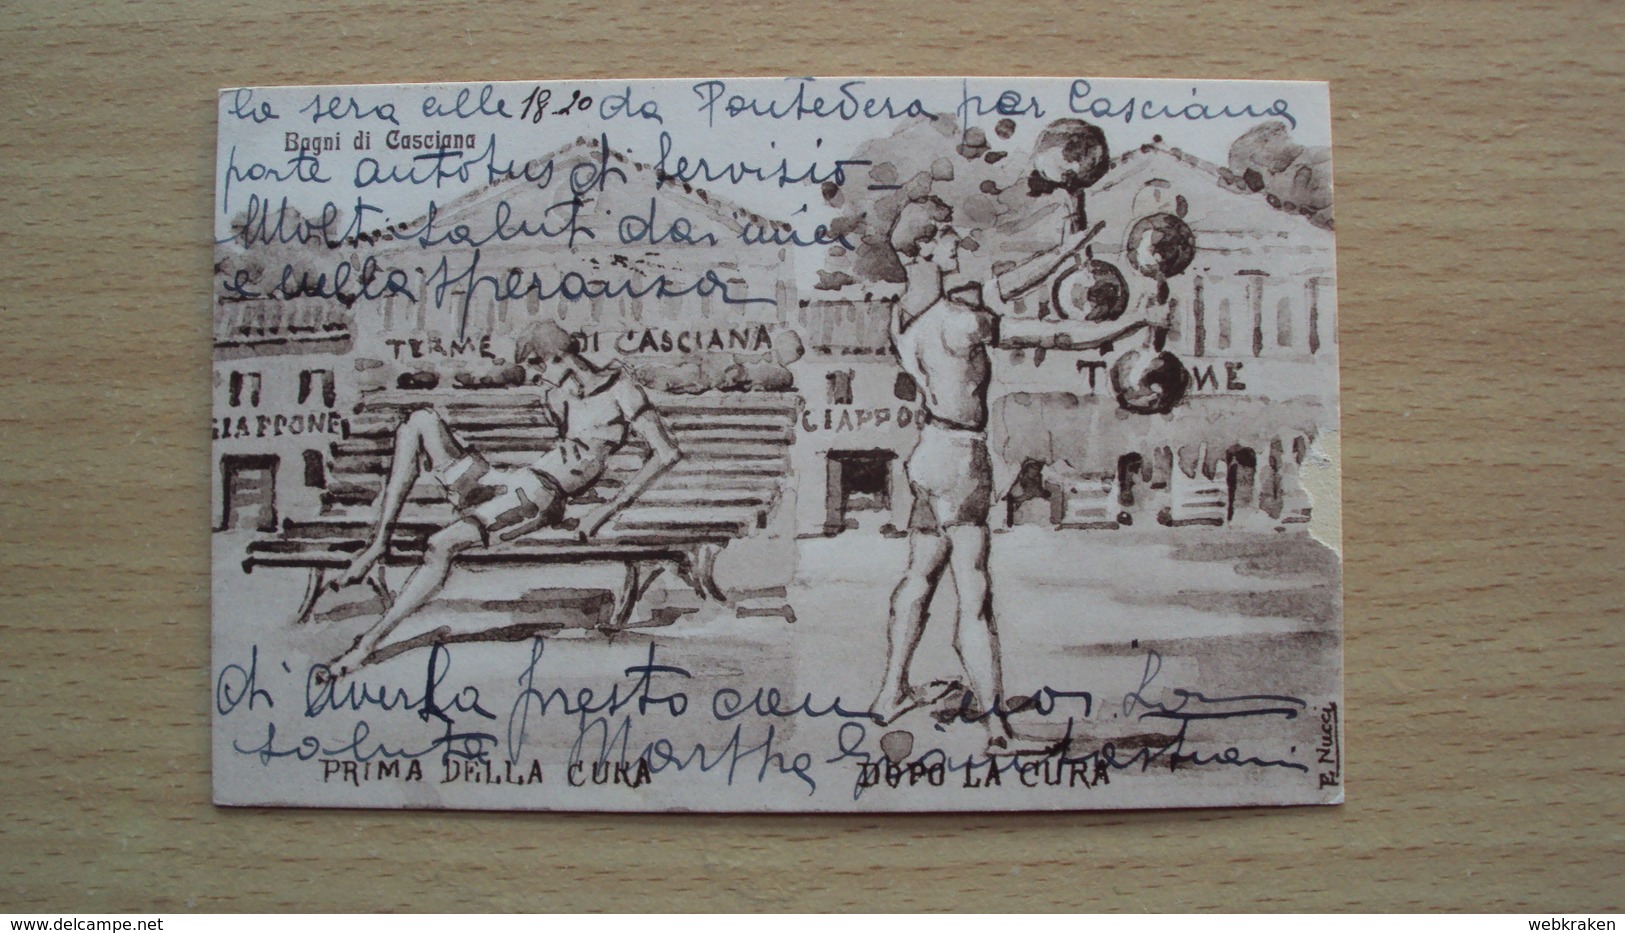 la sera alle 18-20 da Pontedera per Casciana
Bagni di Casciana
parte autobus di servisio -
Molti saluti dai miei
e nella speransa
TERME DI CASCIANA
GIAPPONE
GIAPPO
T ME
di averla presto con noi. La
saluta Martha
PRIMA DELLA CURA
DOPO LA CURA
P. Nucci
delcampe.net
webkraken